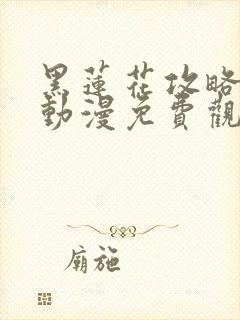 黑蓮花攻略
動漫免費觀
廟施